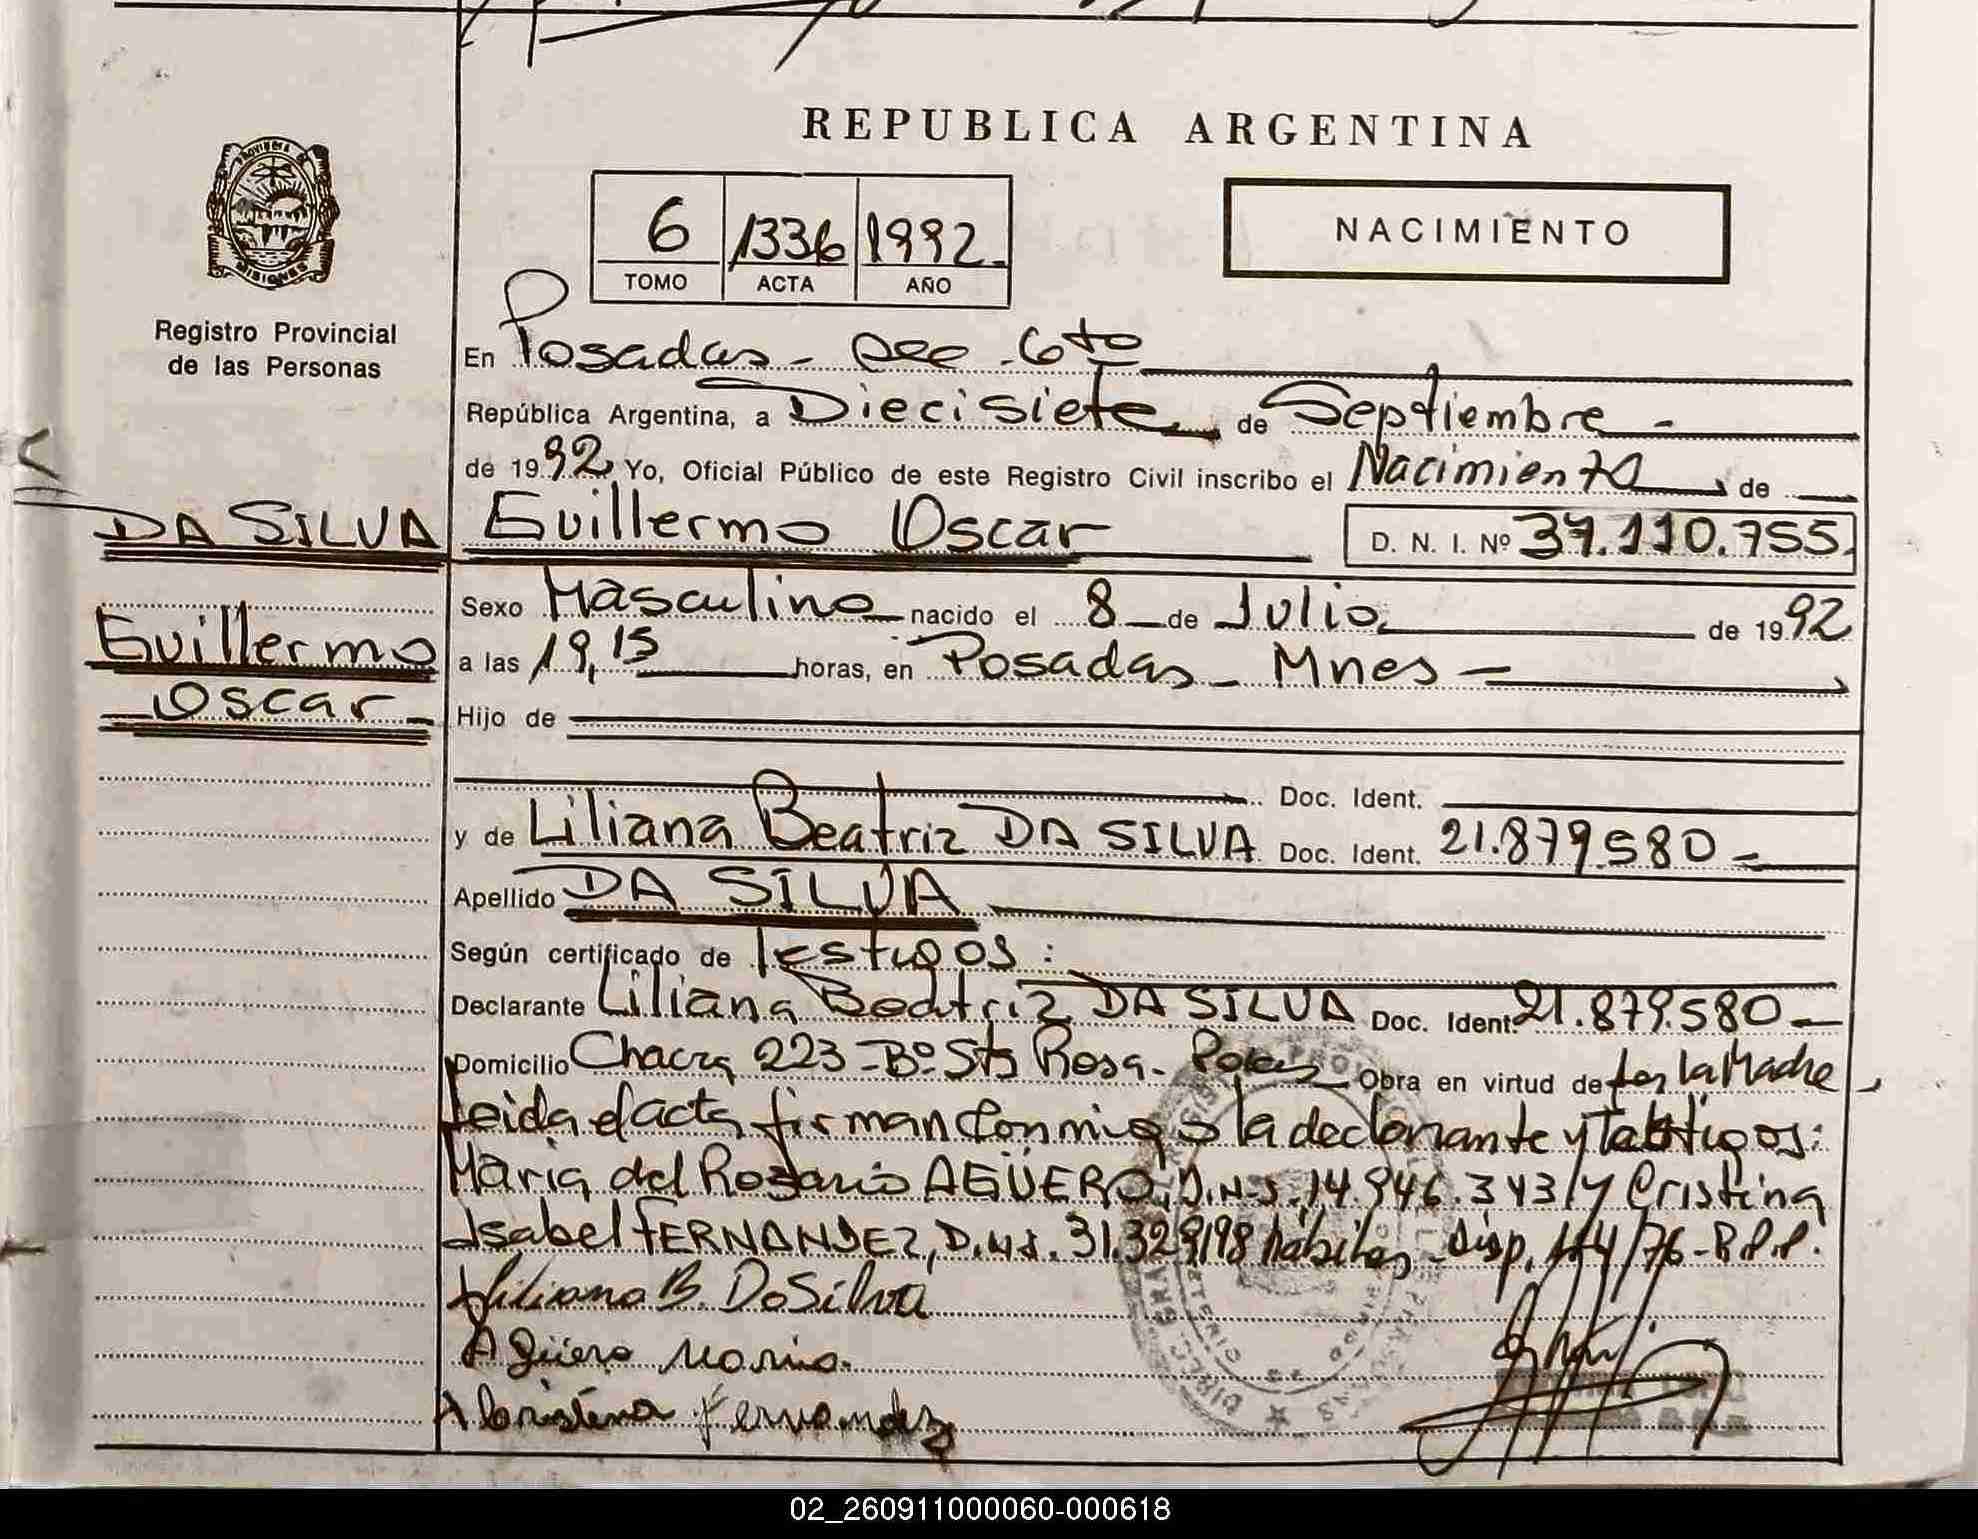 REPUBLICA ARGENTINA
Provincia de
MISIONES
Registro Provincial
de las Personas
6 1336 1992
TOMO ACTA AÑO
NACIMIENTO
En Posadas - Sec - 6to
República Argentina, a Diecisiete de Septiembre -
de 1992 Yo, Oficial Público de este Registro Civil inscribo el Nacimiento, de
DA SILVA Guillermo Oscar D. N. I. Nº 37.110.755.
Guillermo
Oscar
Sexo Masculino nacido el 8 de Julio de 1992
a las 19,15 horas, en Posadas - Mnes -
Hijo de
Doc. Ident.
y de Liliana Beatriz DA SILVA Doc. Ident. 21.879.580 -
Apellido DA SILVA
Según certificado de Testigos :
Declarante Liliana Beatriz DA SILVA Doc. Ident. 21.879.580 -
Domicilio Chacra 223 - Bº Sta Rosa - Obra en virtud de ser la Madre
leida el acta, firman conmigo la declarante y Testigos:
Maria del Rosario AGÜERO, D.N.I. 14.946.343 y Cristina
Isabel FERNANDEZ, D.N.I. 31.329.198 hábiles - Disp. 144/76 - R.P.P.
Liliana B. DaSilva
Agüero Maria.
Cristina Fernandez
02_260911000060-000618